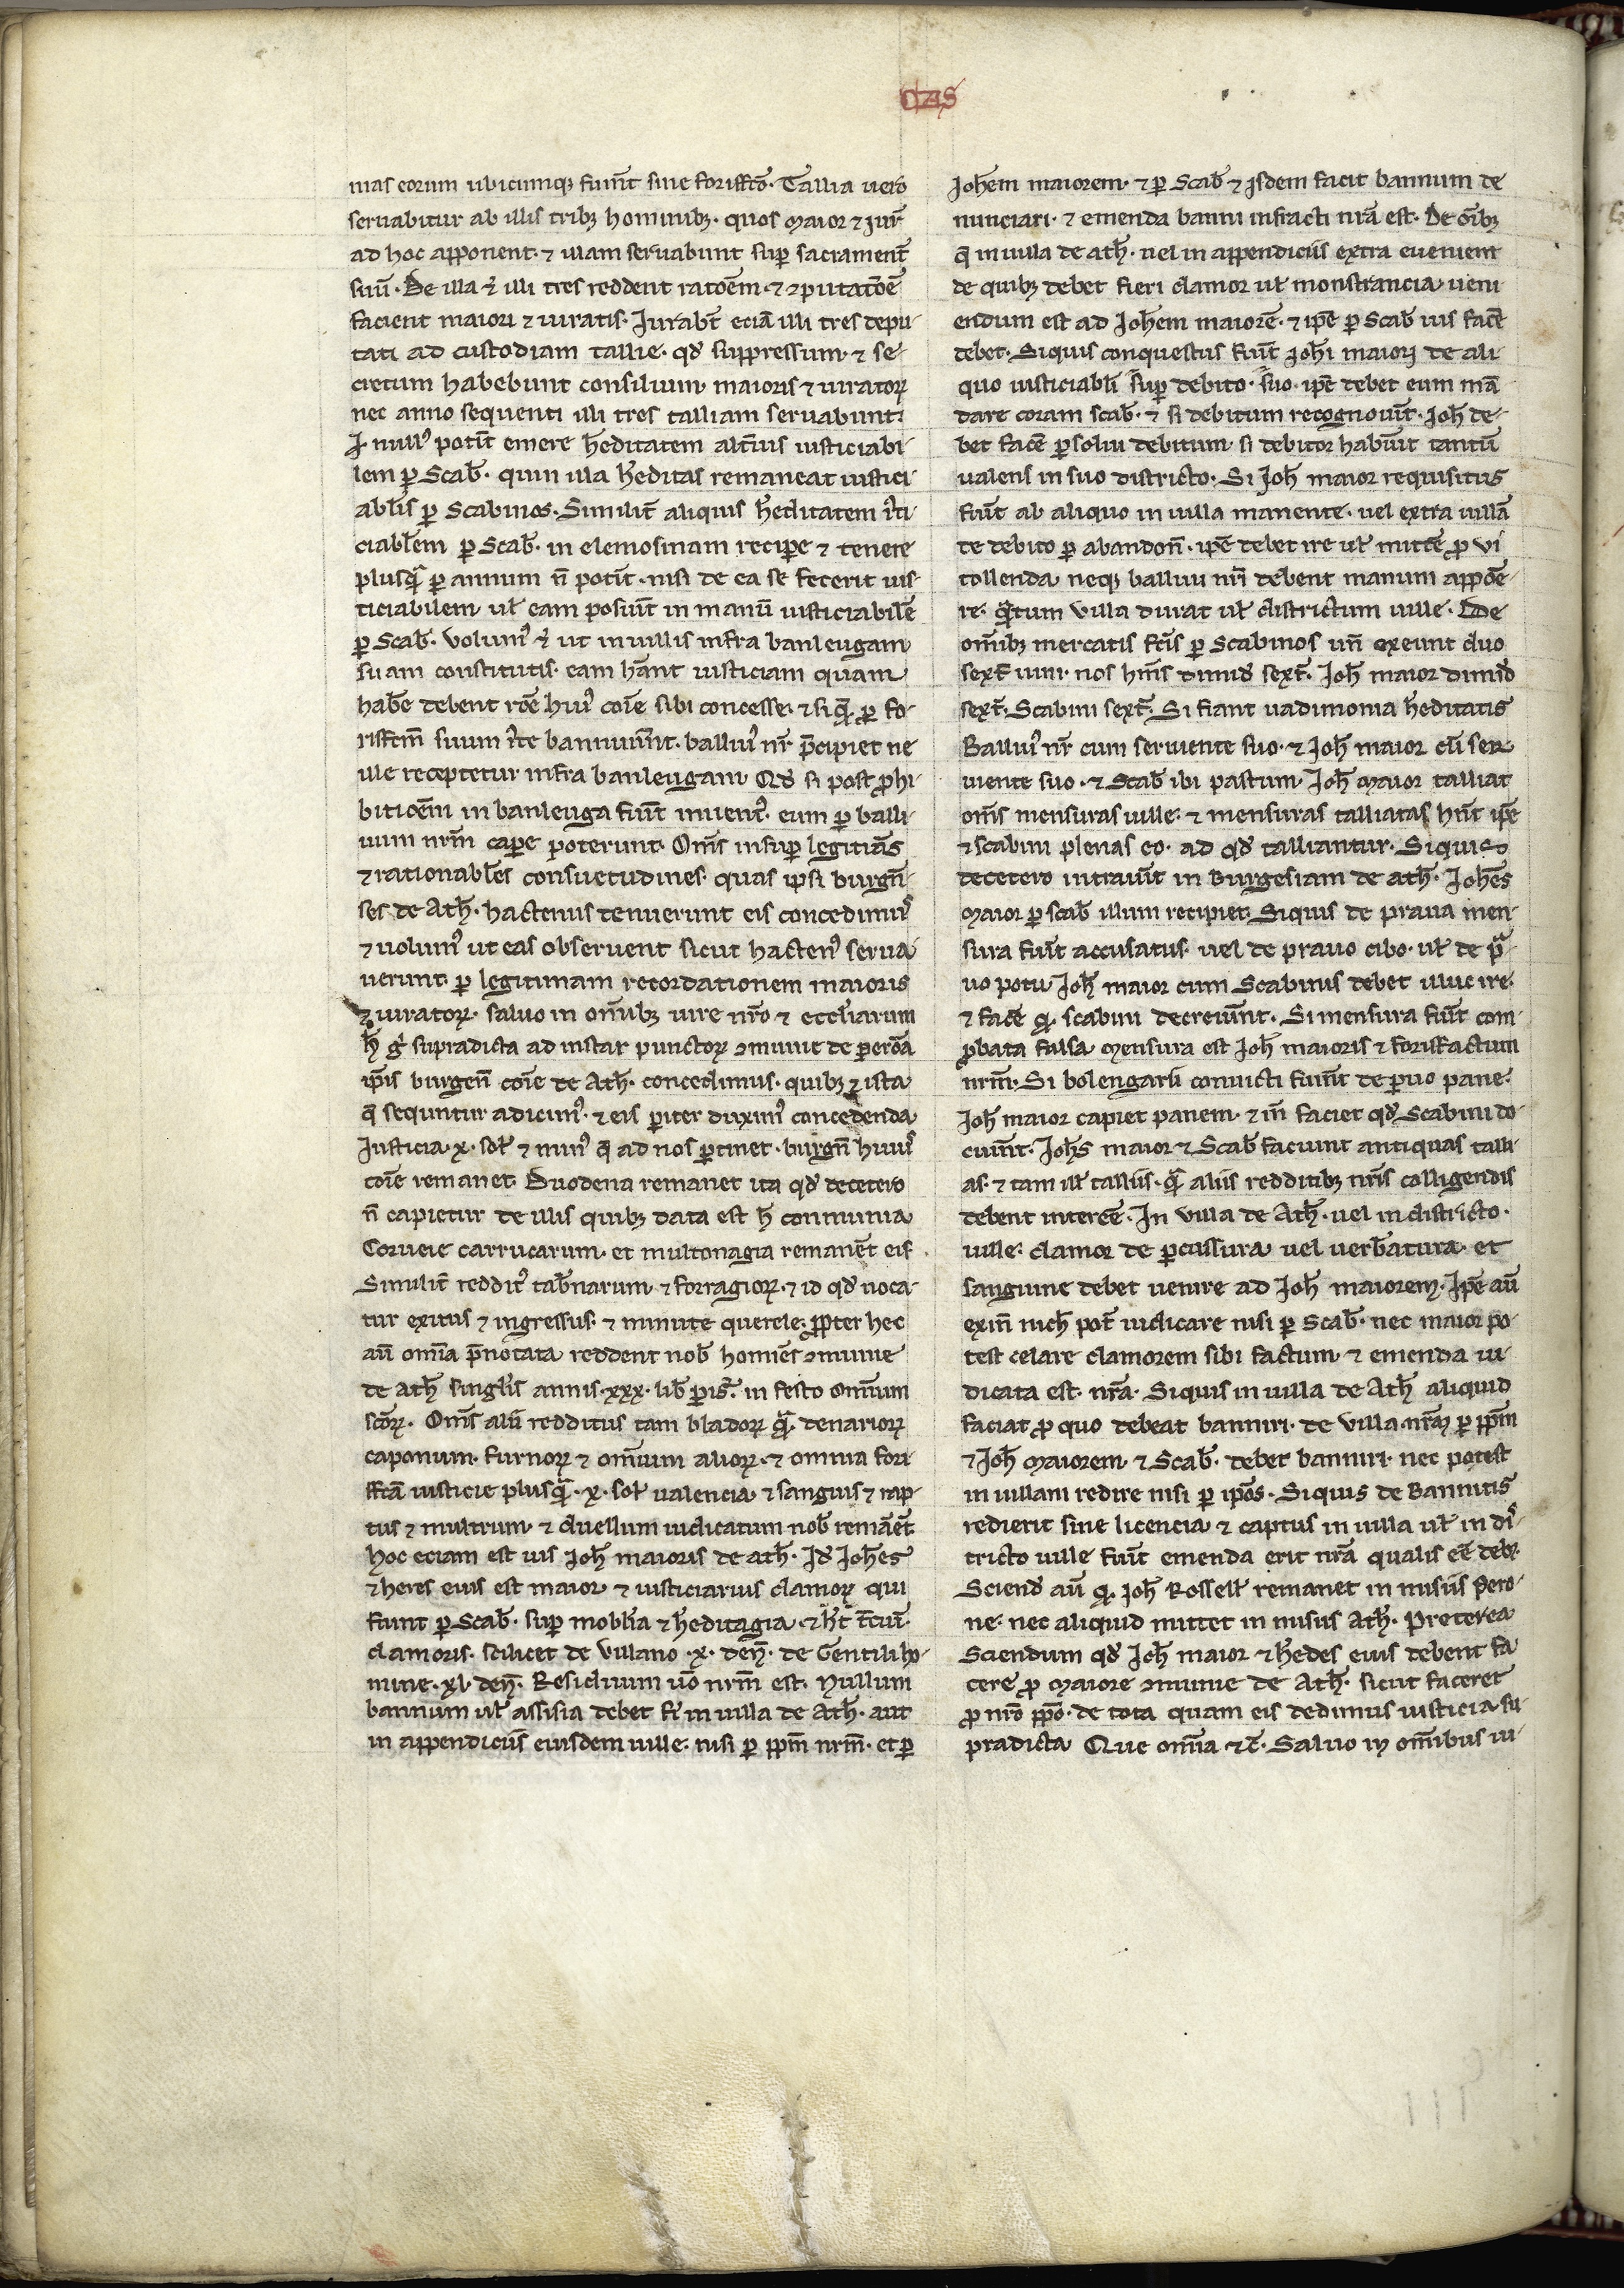 CAS
mas eorum ubicumqꝫ fuerīt sine foriffcō. Tallia uero
seruabitur ab illis tribꝫ hominibꝫ. quos maior ⁊ iur̄
ad hoc apponent. ⁊ illam seruabunt suꝑ sacrament̄
suū. De illa ꝛ illi tres reddent ratoēm. ⁊ ꝯputatōēm
facient maiori ⁊ iuratis. Iurabt̄ eciā illi tres depu-
tati ad custodiam tallie. qd̓ suppressum ⁊ se-
cretum habebunt consilium maioris ⁊ iuratoꝝ
nec anno sequenti illi tres talliam seruabunt.
Jt̄ null᷒ potit̄ emere h̓editatem alti᷒us iusticiabi-
lem ꝑ Scab̄. quin illa h̓editas remaneat iustici-
abl̓is ꝑ Scabinos. Similit̄ aliquis h̓editatem i᷒ti-
ciabl̓em ꝑ Scab̄. in elemosinam reciꝑe ⁊ tenere
plusqᷓ ꝑ annum n̄ potit̄. nisi de ea se fecerit ius-
ticiabilem ul̓ eam posuit̄ in manū iusticiabilē
ꝑ Scab̄. Volum᷒ ꝛ ut in uillis infra banleugam
suam constitutis. eam hn̄ant iusticiam quam
habē debent rōe hui᷒ cōie sibi concesse. ⁊ siqᷓ. ꝑ fo-
riffcm̄ suum i᷒te bannuiīnt. balliui᷒ nr̄ p̄cipiet ne
ille receptetur infra banleugam. Qd̓ si post ꝓhi-
bitioēm in banleuga fuit̄ inuent᷒. eum ꝑ balli-
uum nrm̄ caꝑe poterunt. Om̄s insuꝑ legitimas
⁊ rationabl̓es consuetudines quas ipsi burgn̄-
ses de Ath̓. hactenus tenuerunt eis concedim᷒
⁊ uolum᷒ ut eas obseruent sicut hacten᷒ serua
uerunt. ꝑ legitimam recordationem maioris
⁊ iuratoꝝ. saluo in om̄ibꝫ iure nr̄o ⁊ eccl̓iarum
h̄ g᷒ supradicta ad instar punctoꝝ ꝯmunie de ꝑerōa
ip̄is burgen̄ cōie de Ath̓. concedimus. quibꝫ ⁊ ista
q̄ sequntur adicim᷒. ⁊ eis ꝑiter duxim᷒ concedenda
Iusticia .x. sol̓ ⁊ min᷒ q̄ ad nos ꝑtinet. burgn̄ hui᷒
cōie remanet. Duodena remanet ita qd̓ decetero
n̄ capietur de illis quibꝫ data est h̄ communia
Corueie carrucarum. et multonagia remanēt eis.
Similit̄ reddit᷒ tab̄narum. ⁊ forragioꝝ. ⁊ id qd̓ uoca-
tur exitus ⁊ ingressus. ⁊ minute querele. ꝓpter hec
aū omīa p̄notata reddent nob̄ homiēs ꝯmunie
de Ath̓ singlis annis .xxx. lib̄ ꝑis̄. in festo omnium
scōꝝ. Om̄s alii redditus tam bladoꝝ qᷓ. denarioꝝ
caponum. furnoꝝ ⁊ om̄ium alioꝝ. ⁊ omnia fori-
ffcā iusticie plusqᷓ .x. sol̓ ualencia ⁊ sanguis ⁊ rap-
tus ⁊ multrum ⁊ duellum iudicatum nob̄ remāēt.
Hoc eciam est ius Joh̓ maioris de ath̓. Id̓ Joh̓es
⁊ heres eius est maior ⁊ iusticiarius clamoꝝ qui
fiunt ꝑ Scab̄. suꝑ mobl̓ia ⁊ h̓editagia. ⁊ h̓t t̓cui᷒
clamoris. scilicet de Villano .x. den̄. de Gentili ho-
mine .xl. den̄. Residuum uō nrm̄ est. Nullum
bannum ul̓ assisia debet fi᷒ in uilla de Ath̓. aut
in appendiciis eiusdem uille. nisi ꝑ ꝑpm̄ nrm̄. et ꝑ
Joh̓em maiorem. ⁊ ꝑ Scab̄ ⁊ isdem facit bannum de
nunciari. ⁊ emenda banni infracti nrā est. De om̄ibꝫ
q̄ in uilla de ath̓. uel in appendiciis extra eueniēt
de quibꝫ debet fieri clamor ul̓ monstrancia ueni
endum est ad Joh̓em maiorē. ⁊ ip̄e ꝑ Scab̄ ius facē
debet. Siquis conquestus fuit̄ Joh̓i maiori de ali
quo iusticiabl̓i suꝑ debito. suo. ip̄e debet eum mā
dare coram scab̄. ⁊ si debitum recognouit̄. Joh̓ de-
bet facē ꝑsolui debitum. si debitor habuit̄ tantū
ualens in suo districto. Si Joh̓ maior requisitus
fuit̄ ab aliquo in uilla manente. uel extra uillā
de debito ꝑ abandon̄. ip̄e debet ire ul̓ mittē ꝓ ui
tollenda neqꝫ balliui nri̅ debent manum appōē-
re. qᷓtum uilla durat ul̓ districtum uille. De
om̄ibꝫ mercatis fc̄is ꝑ Scabinos un̄ exeunt duo
sext̄ uini. nos hēm̄s dimid̓ sext̄. Joh̓ maior dimid̓
sext̄. Scabini sext̄. Si fiant uadimonia h̓editatis
Balliui᷒ nr̄ cum seruiente suo. ⁊ Joh̓ maior cū ser-
uiente suo. ⁊ Scab̄ ibi pastum. Joh̓ maior talliat
om̄s mensuras uille. ⁊ mensuras talliatas hn̄t ip̄e
⁊ scabini plenas eo. ad qd̓ talliantur. Siquis
decetero intrauit̄ in Burgesiam de ath̓. Joh̓es
maior ꝑ scab̄ illum recipiet. Siquis de praua men-
sura fuit̄ accusatus. uel de prauo cibo. ul̓ de pᷓ-
uo potu Joh̓ maior cum Scabinis debet illuc ire.
⁊ facē qꝫ. scabini decreuiīnt. Si mensura fuit̄ com-
ꝓbata falsa mensura est Joh̓ maioris ⁊ forisfactum
nrm̄. Si bolengarii conuicti fuerīt de ꝑuo pane.
Joh̓ maior capiet panem. ⁊ in̄ faciet qd̓ Scabini do-
cuiīnt. Joh̓s maior ⁊ Scab̄ faciunt antiquas talli-
as. ⁊ tam ill̓ talliis. qᷓ aliis redditibꝫ nris̄ colligendis
debent intereē. In uilla de Ath̓. uel in districto.
uille. clamor de ꝑcussura uel uerb̓atura. et
sanguine debet uenire ad Joh̓ maiorem. Ip̄e aū
exin̄ nich̓ pot̄ iudicare nisi ꝑ Scab̄. nec maior po-
test celare clamorem sibi factum. ⁊ emenda iu-
dicata est. nr̄a. Siquis in uilla de Ath̓ aliquid
faciat ꝓ quo debeat banniri. de uilla. nrāꝫ ꝑ ꝑpm̄
⁊ Joh̓ maiorem. ⁊ Scab̄. debet banniri. nec potest
in uillam redire nisi ꝑ ip̄os. Siquis de Bannitis
redierit sine licencia ⁊ captus in uilla ul̓ in dis᷒-
tricto uille fuit̄ emenda erit nrā qualis eē debꝫ.
Sciend̓ aū qꝫ. Joh̓ Rossell̓ remanet in misiis Pero-
ne. nec aliquid mittet in misiis Ath̓. Preterea
Sciendum qd̓ Joh̓ maior ⁊ h̓edes eius debent fa
cere ꝓ maiore ꝯmunie de Ath̓. sicut faceret
ꝓ nr̄o ꝑpō. de tota quam eis dedimus iusticia su-
pradicta Que omīa ⁊c̄. Saluo in om̄ibus iu-